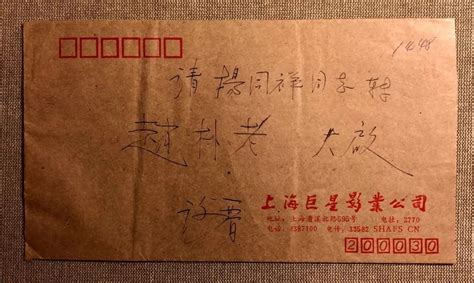 1648
请杨同祥同志转
赵朴老 大启
许晋
上海巨星影業公司
地址：上海漕溪北路595号 电挂：2770
电话：4387100 电传：33582 SHAFS CN
200030